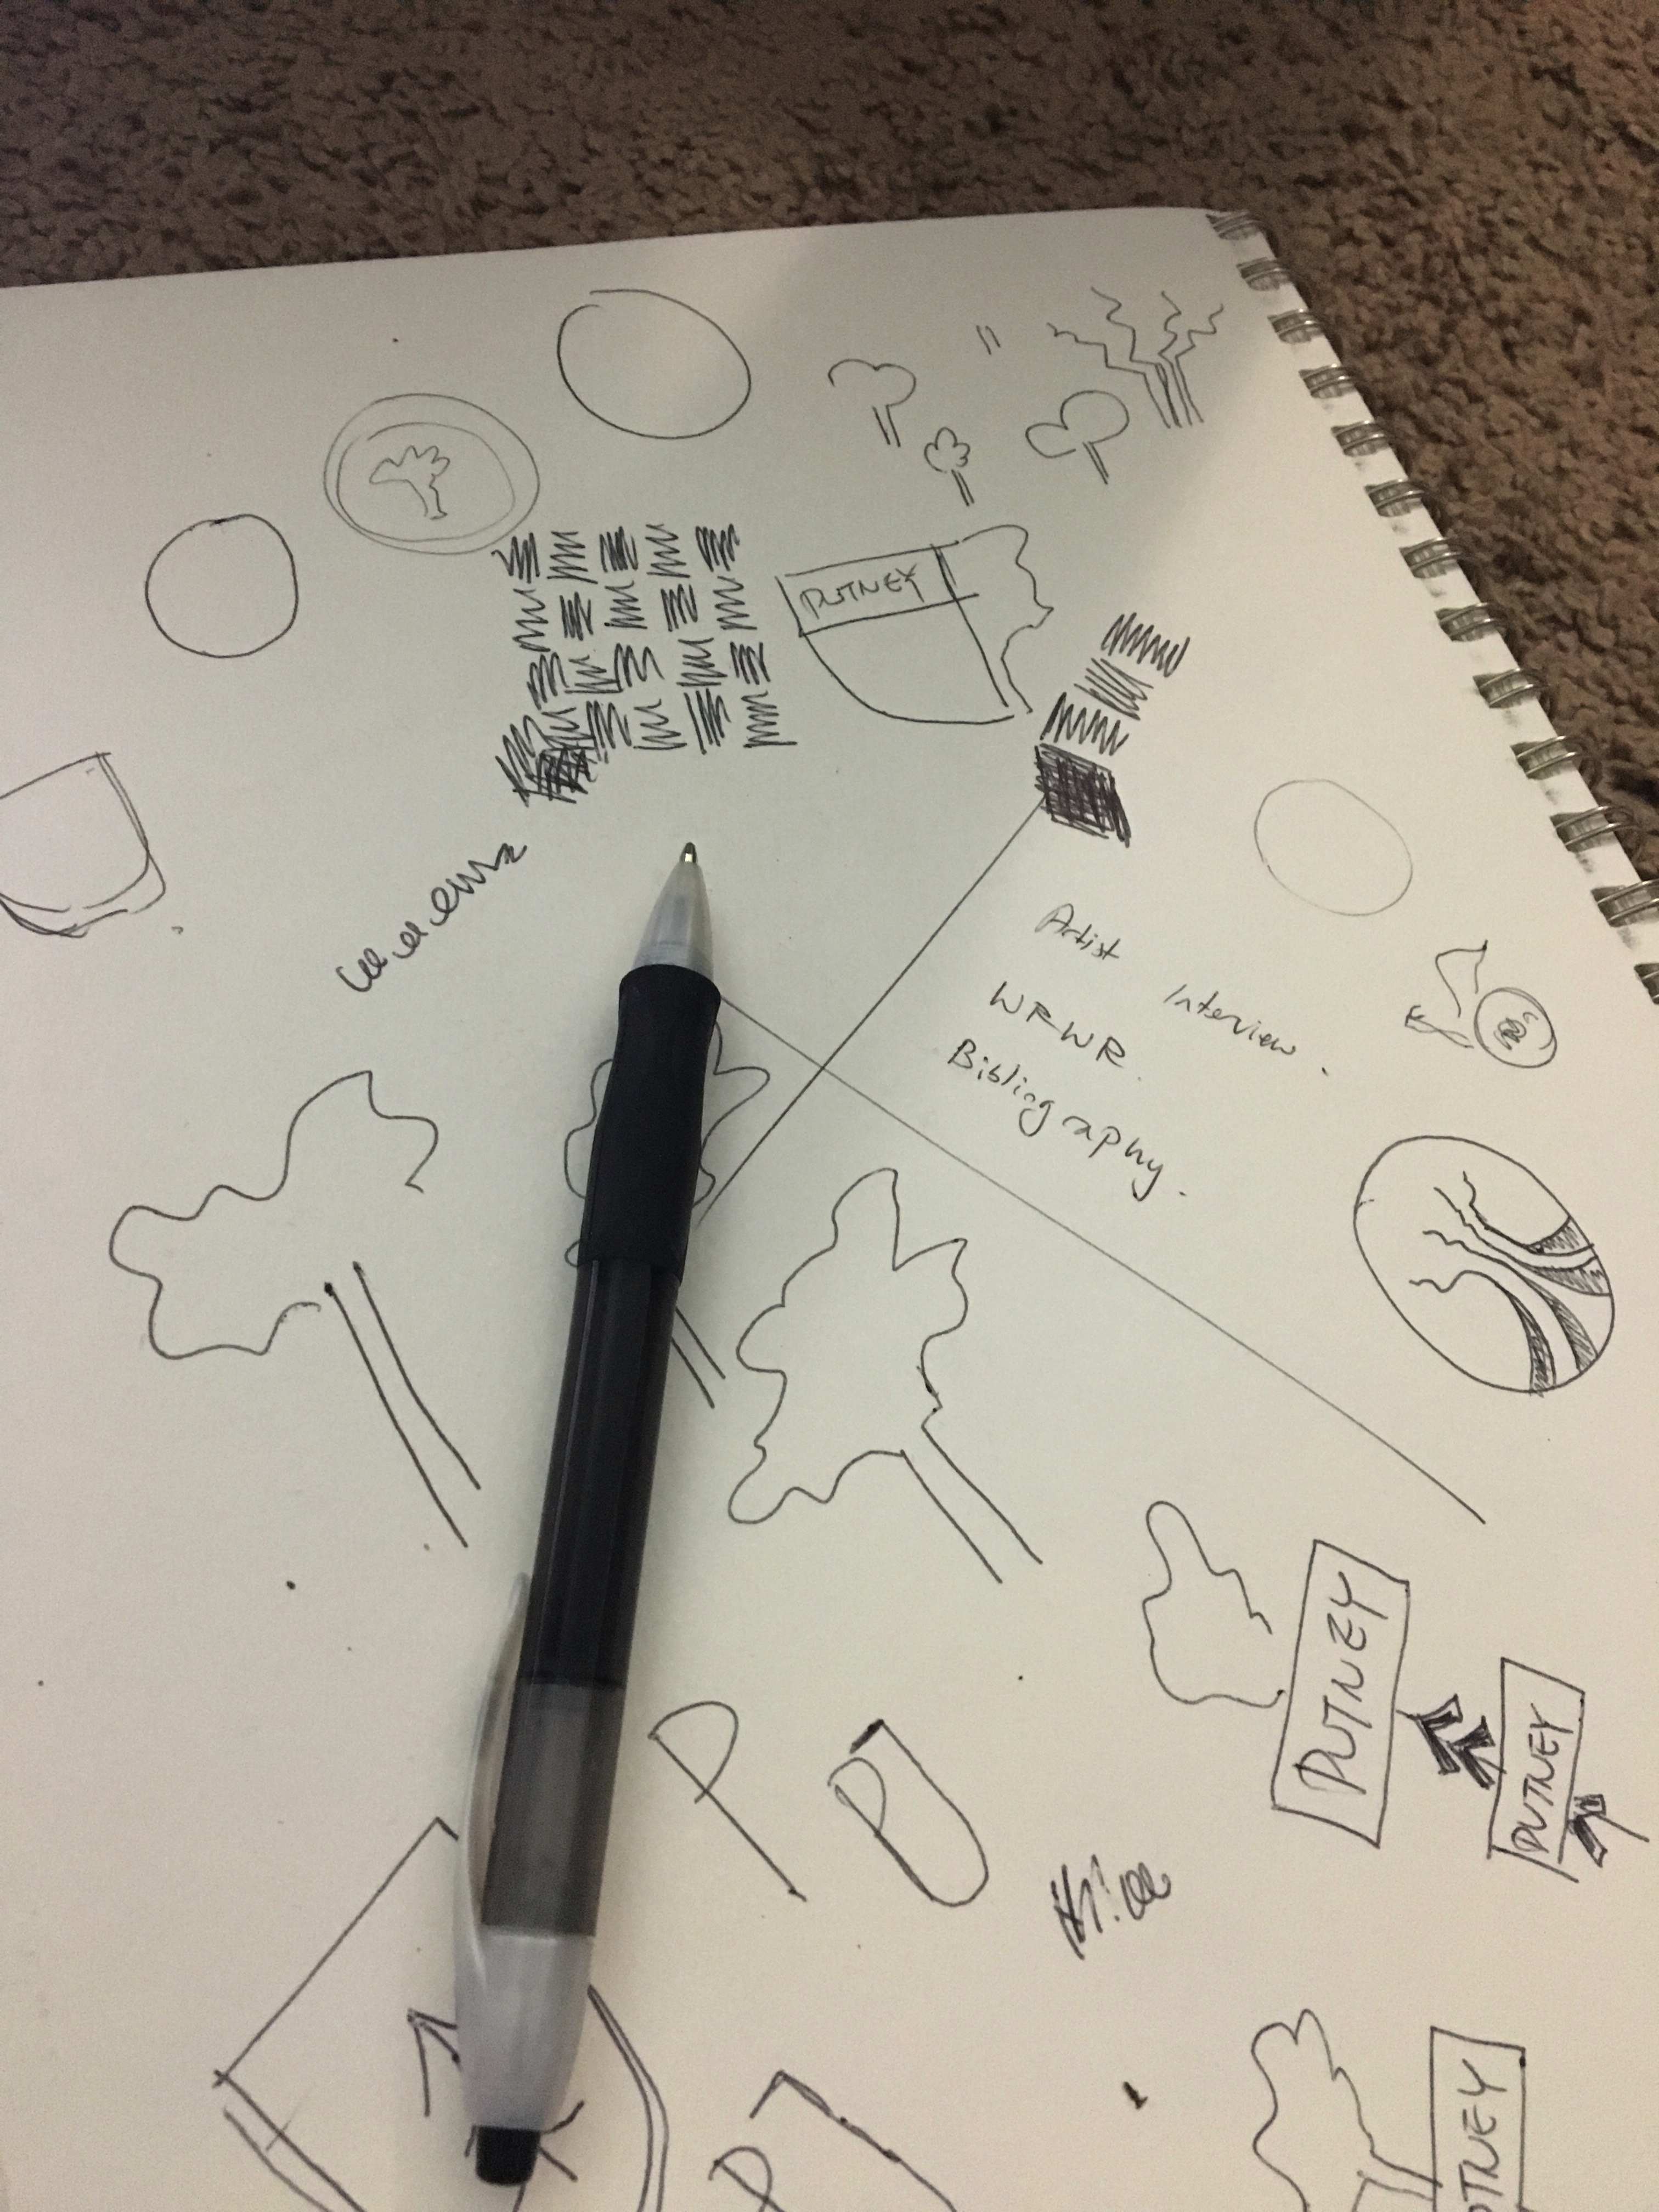 PUTNEY
Artist Interview.
WRWR.
Bibliography.
PUTNEY
PUTNEY
P
P
P
PUTNEY